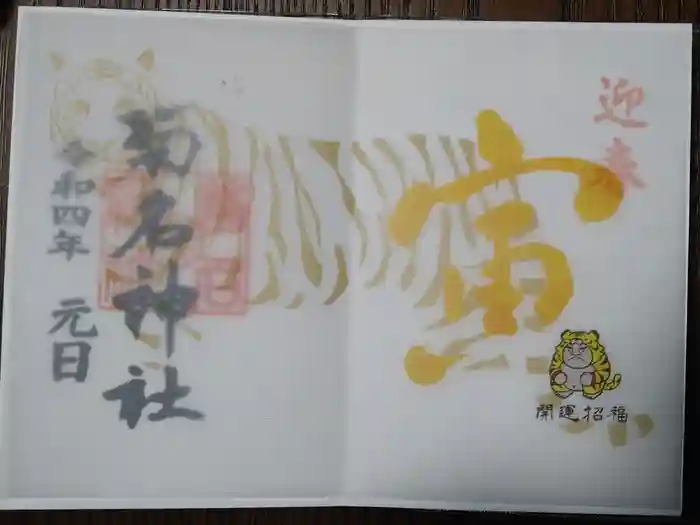 迎春
寅
開運招福
菊名神社
令和四年 元日